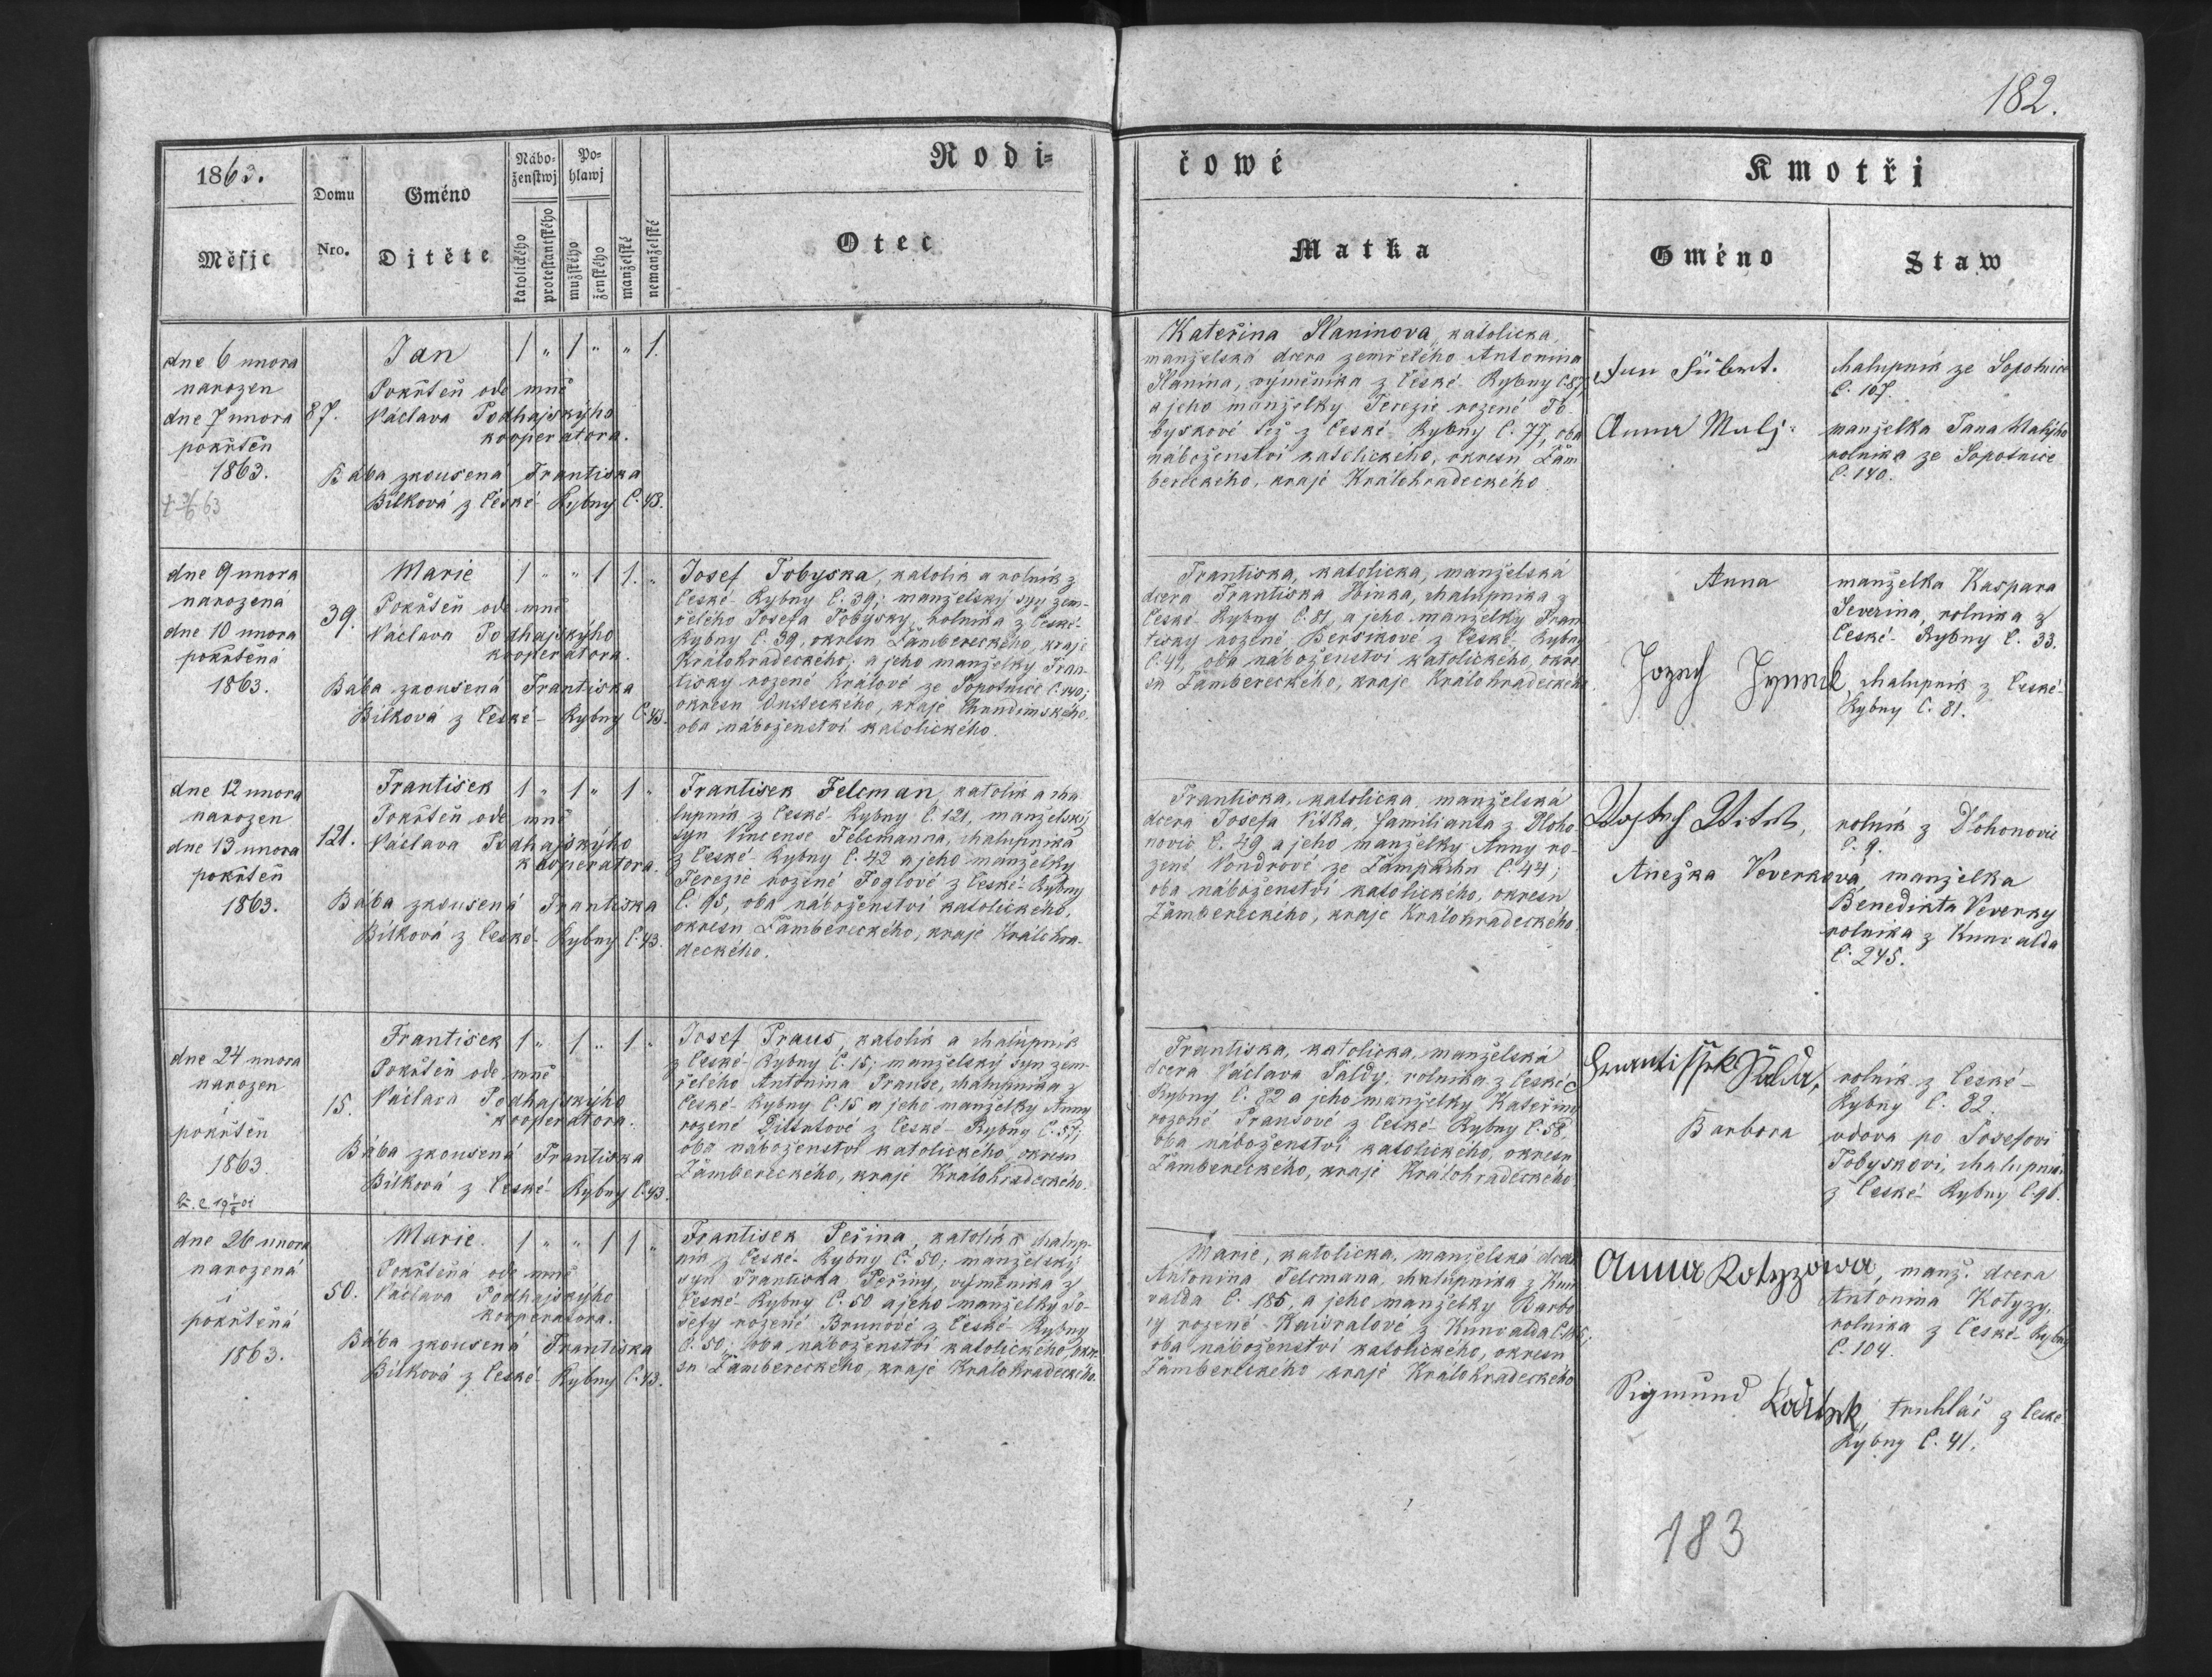 182.
1863.
Měsjc
Domu
Nro.
Gméno
Djtěte
Nábo-
ženstwj
katolického
protestantského
Po-
hlawj
mužského
ženského
manželské
nemanželské
Rodi=
Otec
čowé
Matka
Kmotři
Gméno
Staw
dne 6 unora
narozen
dne 7 unora
pokřtěn
1863.
87.
Jan 1 " 1 " " 1.
Pokřtěn ode mně
Václava Podhajskýho
kooperatora.
Bába zkousená Frantiska
Bílková z České-Rybny Č. 43.
Kateřina Slaninova, katolicka,
manželská dcera zemřelého Antonina
Slanina, výměnika z České-Rybny Č. 87,
a jeho manželky Terezie rozené To-
byskové též z České-Rybny Č. 77, oba
náboženství katolického, okresu Žam
bereckého, kraje Králohradeckého
chalupník ze Sopotnice
Č. 167.
Anna Malj
manželka Jana Malýho
rolnika ze Sopotnice
Č. 140.
dne 9 unora
narozená
dne 10 unora
pokřtěná
1863.
39.
Marie 1 " " 1 1. "
Pokřtěn ode mně
Václava Podhajskýho
kooperatora.
Baba zkousená Frantiska
Bílková z České-Rybny Č. 43.
Josef Tobyska, katolík a rolník z
České-Rybny Č. 39; manželský syn zem-
řelého Josefa Tobysky, rolnika z České-
Rybny Č. 39, okresu Žambereckého, kraje
Králohradeckého; a jeho manželky Fran-
tisky rozené Králové ze Sopotnice Č. 140;
okresu Ousteckého, kraje Chrudimského.
oba náboženství katolického.
Frantiska, katolicka, manželská
dcera Frantiska Hinka, chalupnika z
České-Rybny Č. 81, a jeho manželky Fran
tisky rozené Bersikové z České-Rybny
Č. 41, oba náboženství katolického, okre
su Žambereckého, kraje Králohradeckého
Anna
manželka Kaspara
Severina, rolnika z
České-Rybny Č. 33.
chalupník z České-
Rybny Č. 81.
dne 12 unora
narozen
dne 13 unora
pokřtěn
1863.
121.
Frantisek 1 " 1 " 1 "
Pokřtěn ode mně
Václava Podhajskýho
kooperatora.
Bába zkousená Frantiska
Bílková z České-Rybny Č. 43.
Frantisek Felcman, katolík a cha
lupník z České-Rybny Č. 121, manželský
syn Vincense Felcmanna, chalupnika
z České-Rybny Č. 42 a jeho manželky
Terezie rozené Foglové z České-Rybny
Č. 95, oba náboženství katolického,
okresu Žambereckého, kraje Králohra-
deckého.
Frantiska, katolicka, manželská
dcera Josefa Vitka, familianta z Dloho
novic Č. 49 a jeho manželky Anny ro-
zené Vondrové ze Žampachu Č. 44;
oba náboženství katolického, okresu
Žambereckého, kraje Králohradeckého
rolník z Dlohonovic
Č. 9.
Anežka Veverková, manželka
Benedikta Veverky
rolnika z Kunvalda
Č. 245.
dne 24 unora
narozen
i
pokřtěn
1863.
15.
Frantisek 1 " 1 " 1 "
Pokřtěn ode mně
Václava Podhajskýho
kooperatora.
Bába zkousená Frantiska
Bílková z České-Rybny Č. 43.
Josef Praus, katolík a chalupník
z České-Rybny Č. 15; manželský syn zem-
řelého Antonina Prause, chalupnika z
České-Rybny Č. 15 a jeho manželky Anny
rozené z České-Rybny Č. 57;
oba náboženství katolického, okresu
Žambereckého, kraje Králohradeckého.
Frantiska, katolicka, manželská
dcera Václava Šaldy, rolnika z České
Rybny Č. 82 a jeho manželky Kateřiny
rozené Prausové z České-Rybny Č. 58,
oba náboženství katolického, okresu
Žambereckého, kraje Králohradeckého.
Frantissek Ssalda,
rolník z České-
Rybny Č. 82.
Barbora
vdova po Josefovi
Tobyskovi, chalupnik.
z České-Rybny Č. 96.
dne 26 unora
narozená
i
pokřtěná
1863.
50.
Marie. 1 " " 1 1 "
Pokřtěna ode mně
Václava Podhajskýho
kooperatora.
Bába zkousená Frantiska
Bílková z České-Rybny Č. 43.
Frantisek Peřina, katolík chalup-
nik z České-Rybny Č. 50; manželský
syn Frantiska Peřiny, výměnika z
České-Rybny Č. 50 a jeho manželky Jo-
sefy rozené Brunové z České-Rybny
Č. 50; oba náboženství katolického, okre-
su Žambereckého, kraje Králohradeckého.
Marie, katolicka, manželská dcera
Antonina Felcmana, chalupnika z Kun
valda Č. 185, a jeho manželky Barbo
ry rozené Kaisralové z Kunvalda
oba náboženství katolického, okresu
Žambereckého kraje Králohradeckého
Anna Kotyzowa, manž. dcera
Antonina Kotyzy,
rolnika z České-Rybny
Č. 104.
Sigmund
truhlář z České-
Rybny Č. 41.
183